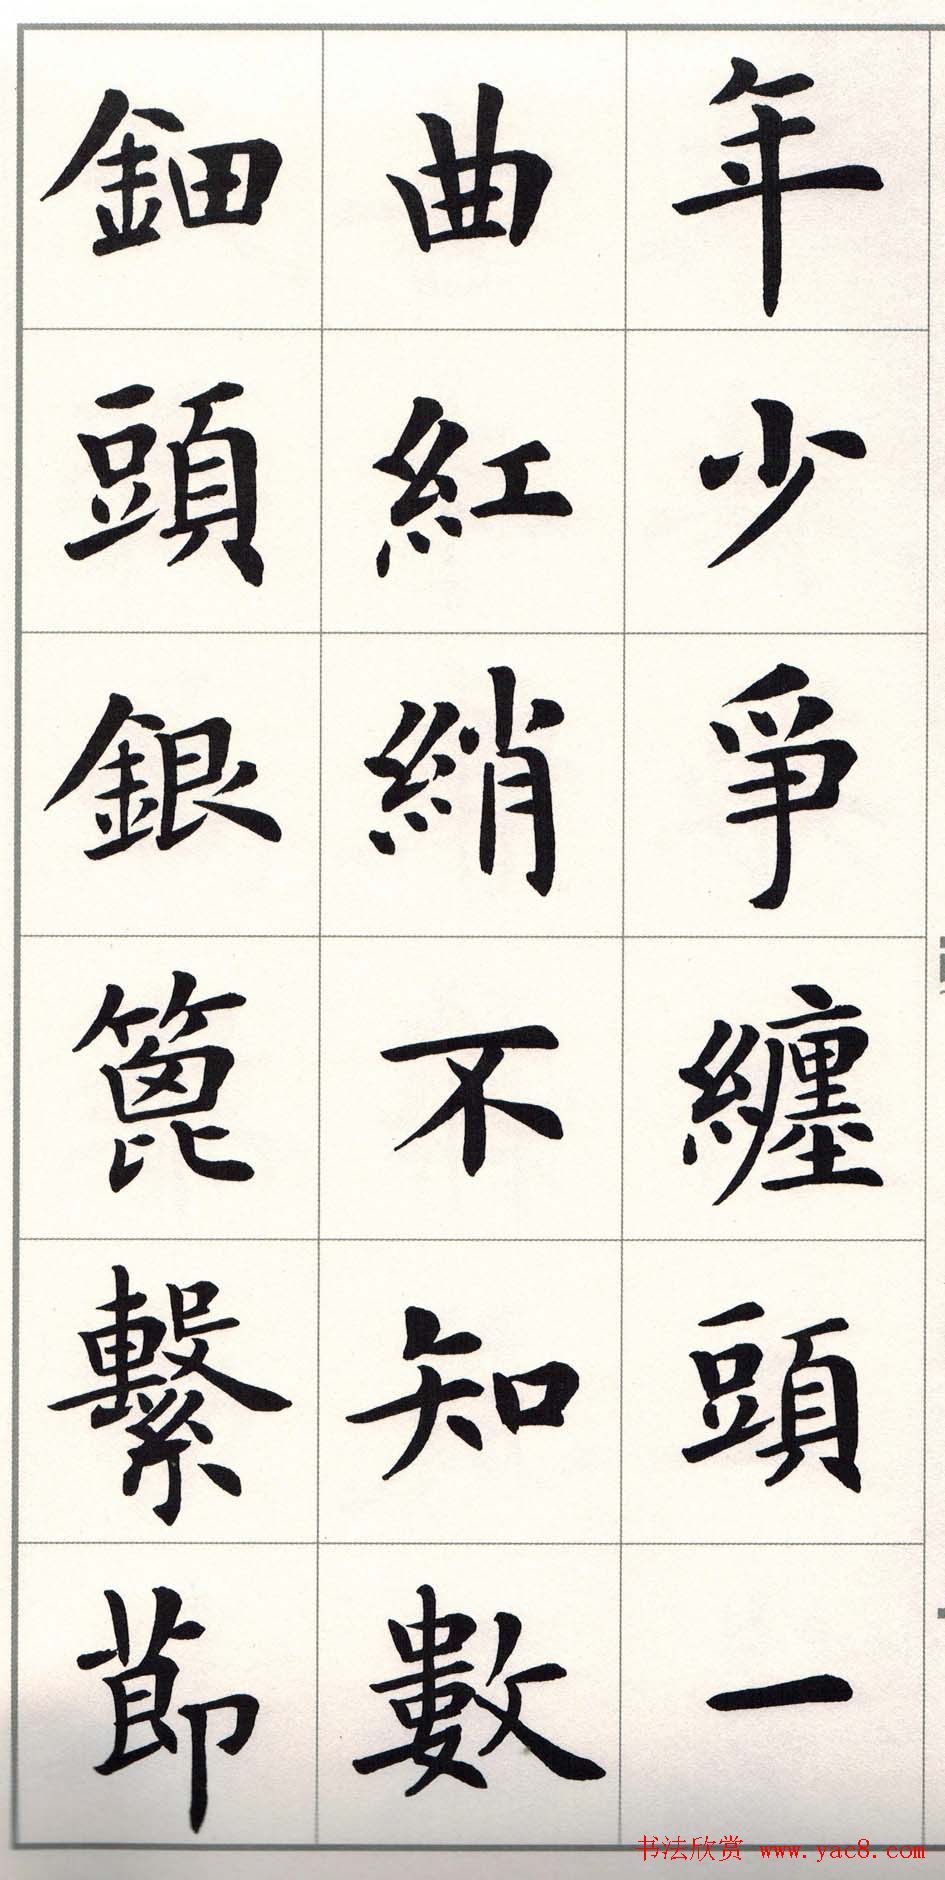 年少爭纏頭一
曲紅綃不知數
鈿頭銀篦繫節
书法欣赏 www.yac8.com